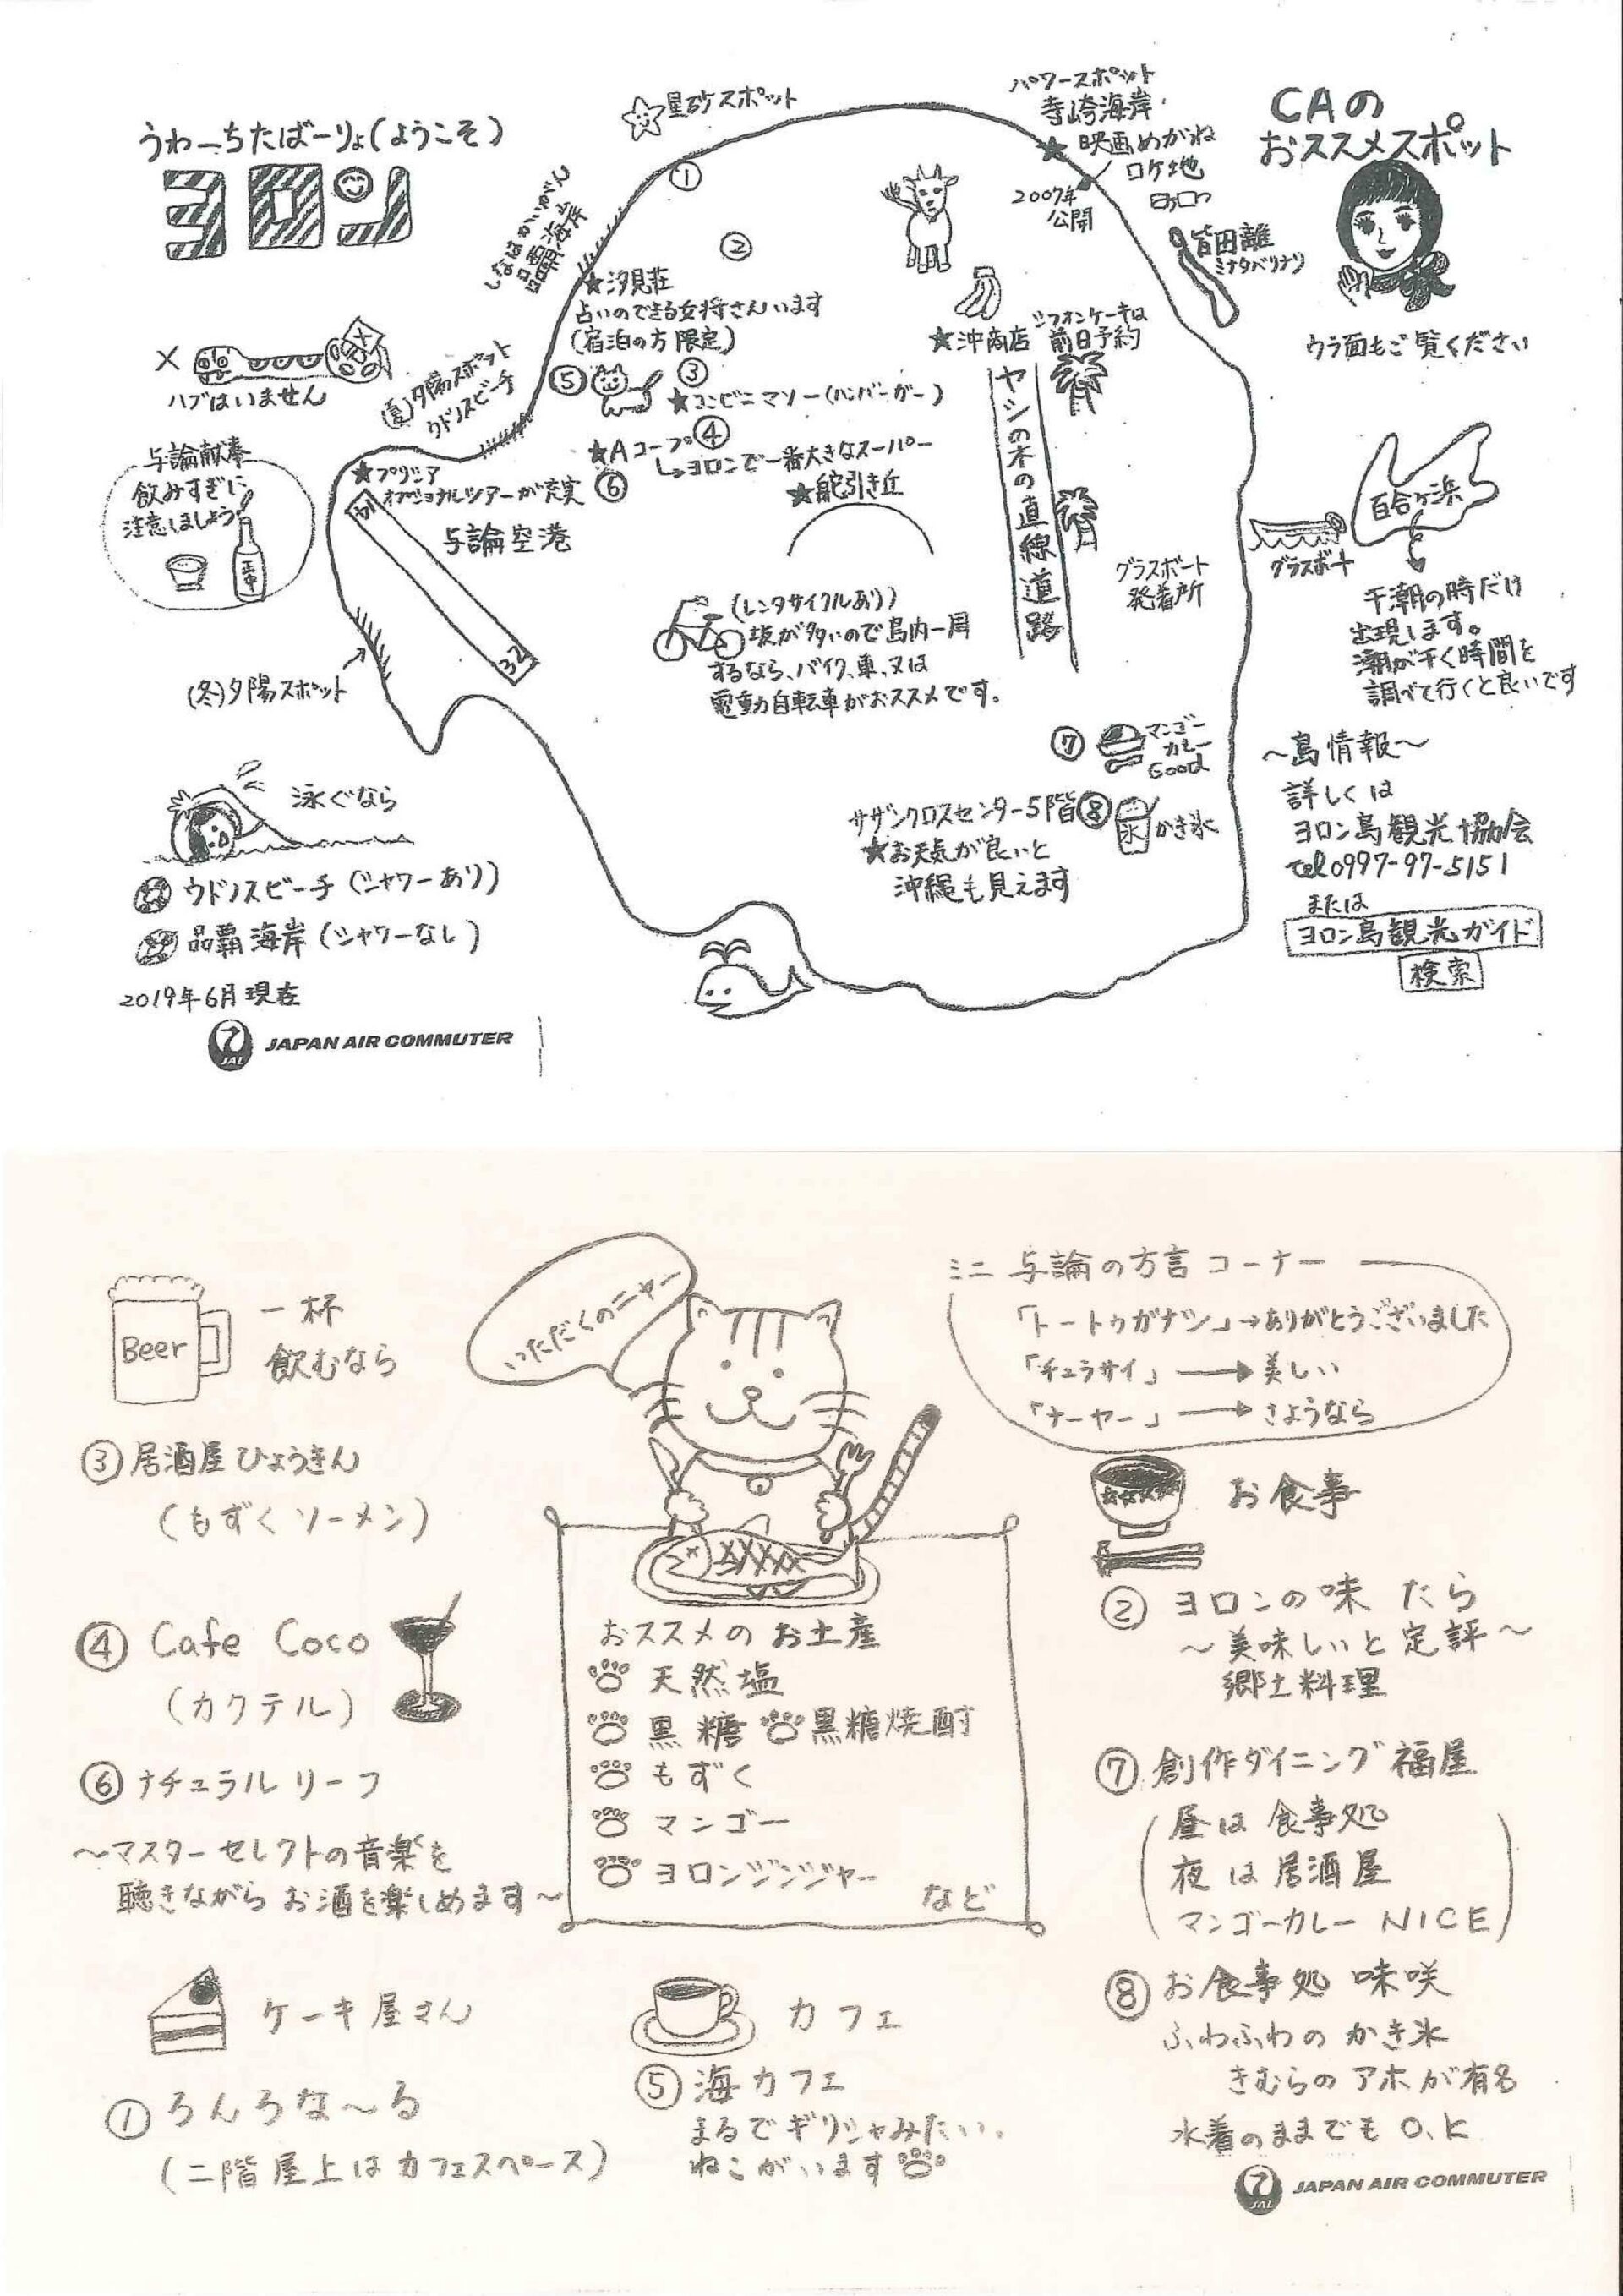 うわーちたばーりょ(ようこそ)
ヨロン
星砂スポット
パワースポット
寺崎海岸
映画めがね
ロケ地
2007年
公開
CAの
おススメスポット
皆田離
ミナタバリナリ
ウラ面もご覧ください
①
②
しなはかいがん
品覇海岸
★汐見荘
占いのできる女将さんいます
(宿泊の方限定)
×
ハブはいません
(夏)夕陽スポット
ウドノスビーチ
⑤
③
★コンビニマソー(ハンバーガー)
★Aコープ④
↳ヨロンで一番大きなスーパー
⑥
★沖商店
シフォンケーキは
前日予約
ヤシの木の直線道路
与論献奉
飲みすぎに
注意しましょう
★プリシア
オプショナルツアーが充実
14
32
与論空港
★舵引き丘
(レンタサイクルあり)
坂が多いので島内一周
するなら、バイク、車、又は
電動自転車がおススメです。
グラスボート
発着所
グラスボート
百合ヶ浜
干潮の時だけ
出現します。
潮が干く時間を
調べて行くと良いです
(冬)夕陽スポット
⑦
マンゴー
カレー
Good
サザンクロスセンター5階⑧
氷
かき氷
★お天気が良いと
沖縄も見えます
〜島情報〜
詳しくは
ヨロン島観光協会
tel 0997-97-5151
または
ヨロン島観光ガイド
検索
泳ぐなら
ウドノスビーチ(シャワーあり)
品覇海岸(シャワーなし)
2019年6月現在
JAL
JAPAN AIR COMMUTER
Beer
一杯
飲むなら
③居酒屋ひょうきん
(もずくソーメン)
④ Cafe Coco
(カクテル)
⑥ナチュラルリーフ
〜マスターセレクトの音楽を
聴きながらお酒を楽しめます〜
いただくのニャー
おススメのお土産
天然塩
黒糖 黒糖焼酎
もずく
マンゴー
ヨロンジンジャー
など
ミニ 与論の方言コーナー
「トートゥガナシ」→ありがとうございました
「チュラサイ」→美しい
「ナーヤー」→さようなら
お食事
② ヨロンの味 たら
〜美味しいと定評〜
郷土料理
⑦創作ダイニング福屋
(昼は食事処
夜は居酒屋
マンゴーカレー NICE)
⑧お食事処 味咲
ふわふわのかき氷
きむらのアホが有名
水着のままでもO.K
ケーキ屋さん
①ろんろな〜る
(二階屋上はカフェスペース)
カフェ
⑤海カフェ
まるでギリシャみたい。
ねこがいます
JAL
JAPAN AIR COMMUTER